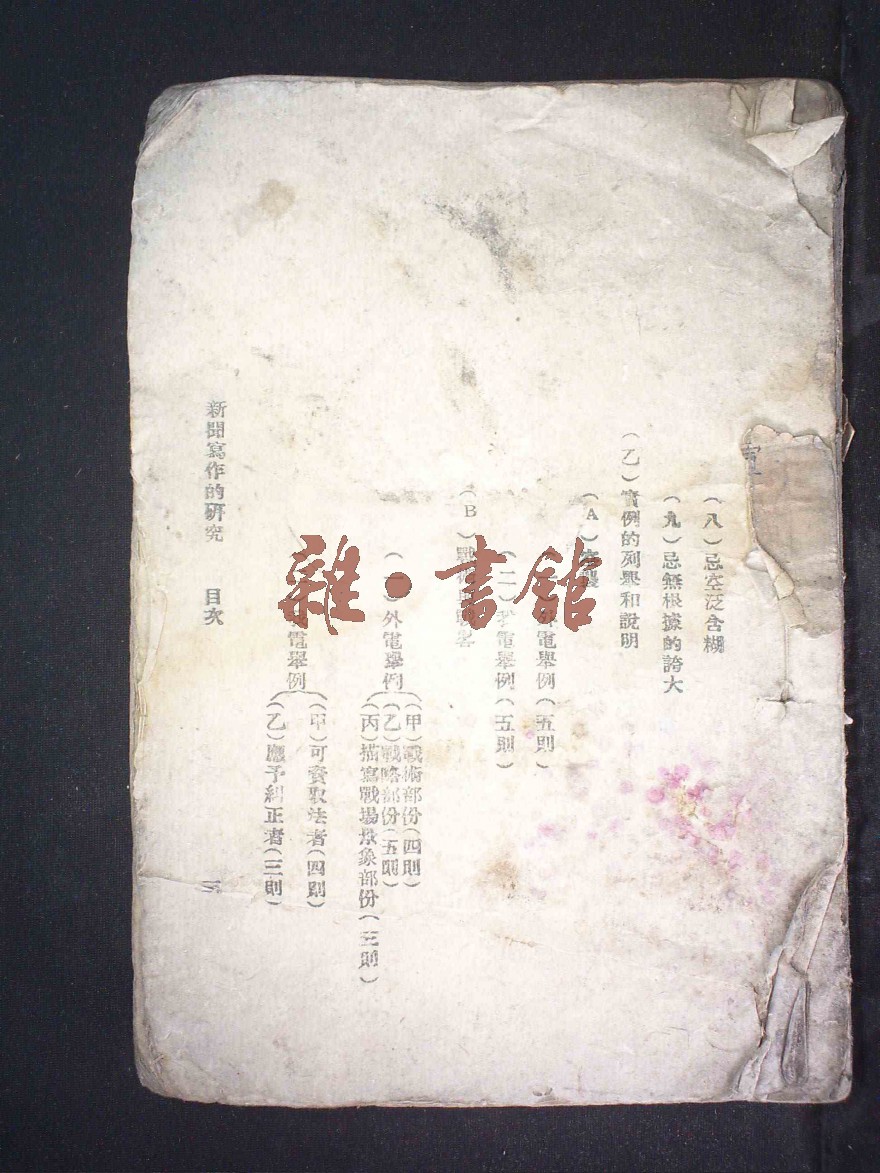 （八）忌空泛含糊
（九）忌無根據的誇大
（乙）實例的列舉和說明
（A）
電舉例（五則）
（二）我電舉例（五則）
（B）戰術
外電舉例
（甲）戰術部份（四則）
（乙）戰略部份（五則）
（丙）描寫戰場景象部份（三則）
電舉例
（甲）可資取法者（四則）
（乙）應予糾正者（三則）
新聞寫作的研究 目次
三
雜·書館